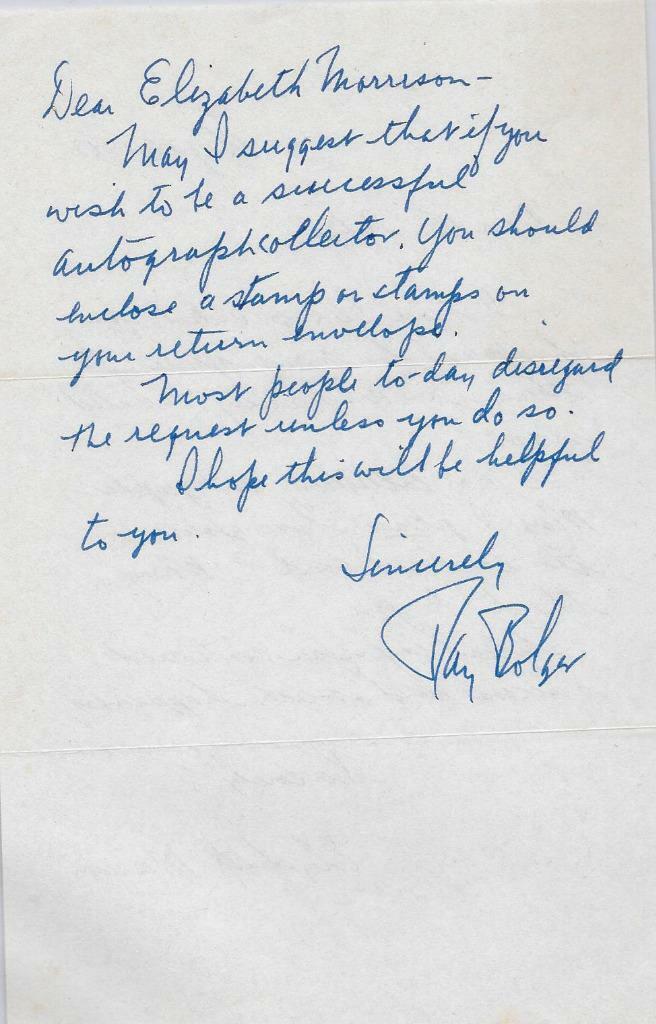 Dear Elizabeth Morrison—
May I suggest that if you
wish to be a successful
autograph collector. You should
enclose a stamp or stamps on
your return envelope.
Most people to-day disregard
the request unless you do so.
I hope this will be helpful
to you.
Sincerely
Ray Bolger